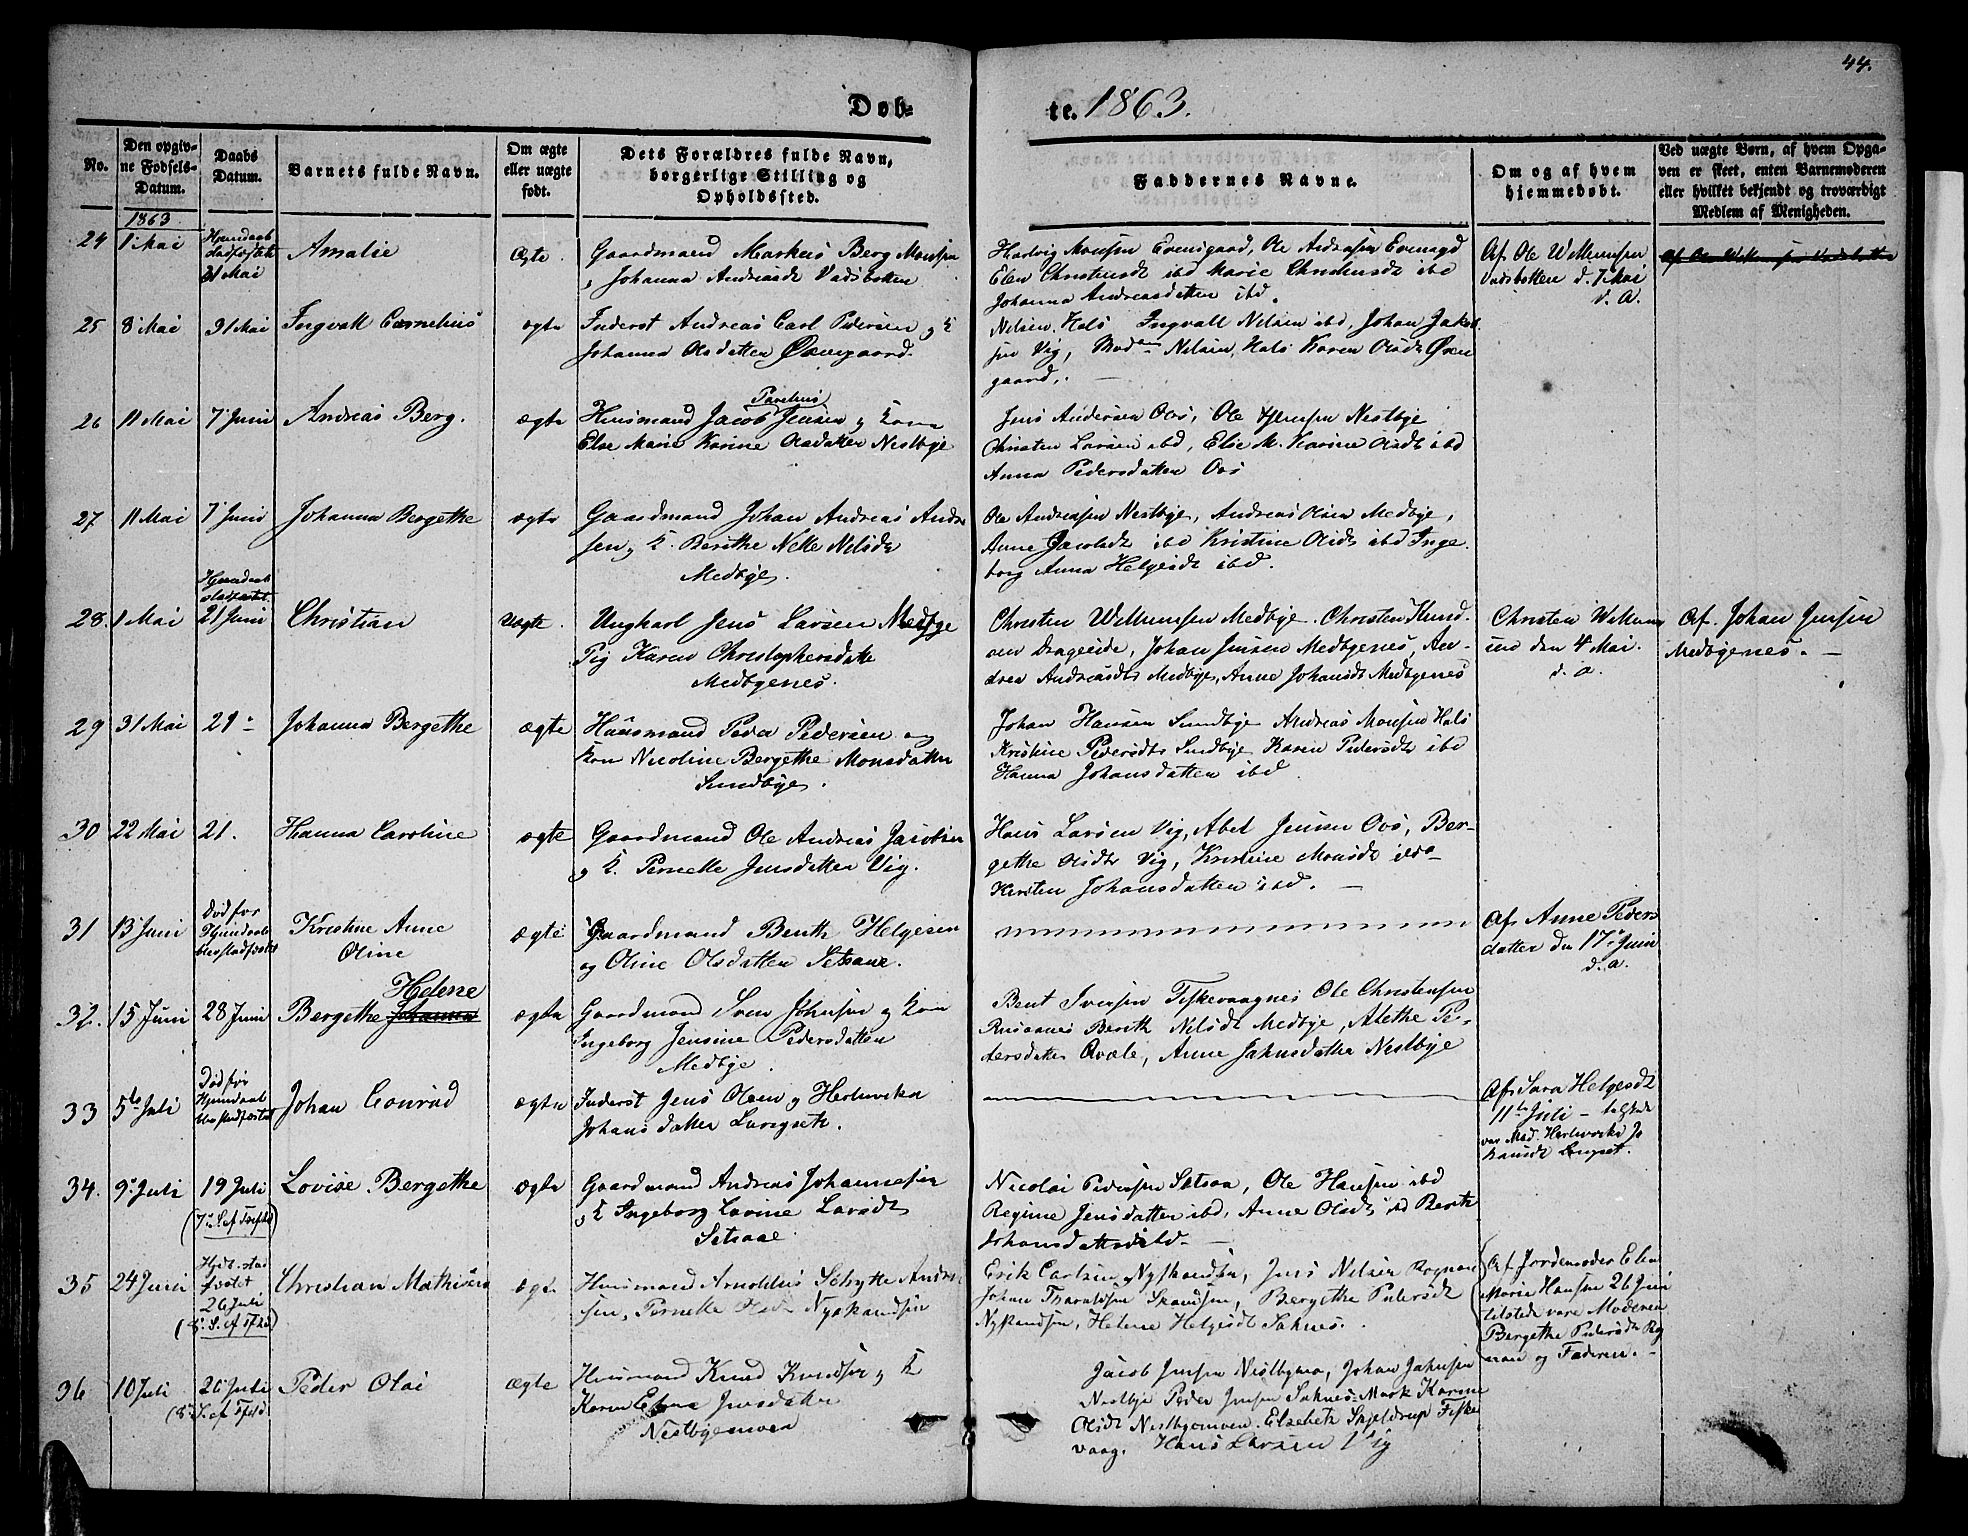 44.
Døb-
te. 1863.
No.
Den opgiv-
ne Fødsels-
Datum.
Daabs
Datum.
Barnets fulde Navn.
Om ægte
eller uægte
født.
Dets Forældres fulde Navn,
borgerlige Stilling og
Opholdssted.
Faddernes Navne.
Om og af hvem
hjemmedøbt.
Ved uægte Børn, af hvem Opga-
ven er skeet, enten Barnemoderen
eller hvilket bekjendt og troværdigt
Medlem af Menigheden.
1863
24 1 Mai
31 Mai
Amalie
Ægte.
Gaardmand Markus Berg Monsen
Johanna
Hartvig Monsen Evensgaard, Ole
Elen Christensdt ibd Marie Christensdt ibd
Johanna Andreasdatten ibd.
Af Ole Willumsen
d. 7 Mai
d. A.
25 8 Mai 31 Mai Ingvall Cornelius ægte
Inderst Andreas Carl Pedersen og K
Johanna Olsdatten
Nilsen Hals Ingvall Nilsen ibd, Johan Jakob
sen Vig, Nilsen, Hals Karen Olsdt Øxen
gaard,
26 11 Mai 7 Juni Andreas Berg. ægte
Parelius
Huusmand Jacob Jensen og Kone
Else Marie Karine Olsdatter Nestbye
Jens Andersen Oos, Ole Jensen Nestbye
Christen Larsen ibd, Else M. Karine Olsdt ibd
Anna Pedersdatten Oos
27 11 Mai 7 Juni Johanna Bergethe ægte
Gaardmand Johan Andreas Andr
sen og K. Berithe Nelle Nilsdt
Medbye.
Ole Andreasen Nestbye, Andreas Olsen Medbye,
Anne Jacobsdt ibd Kristine Olsdt ibd Inge
borg Anna Helgesdt ibd.
28. 1 Mai
Hjemdøbt
stadfæstet
21 Juni
Christian
Uægte.
Ungkarl Jens Larsen Medbye
Pig Karen Christophersdatte
Medbyenes.
Christen Willumsen Medbye. Christen Knud
sen Drageide, Johan Jensen Medbyenes, An-
drea Andreasdtr Medbye, Anne Johansdt Medbyenes
Christen Willum
sen den 4 Mai.
d. a.
Af Johan Jensen
Medbyenes. –
29 31 Mai 21 Johanna Bergethe ægte
Huusmand Peder Pedersen og
Kon Nicoline Bergethe Monsdatter
Sundbye.
Johan Hansen Sundbye Andreas Monsen Hals
Kristine Pedersdtr Sundbye Karen Pedersdt ibd
Hanna Johansdatten ibd
30 22 Mai 21. Hanna Caroline ægte
Gaardmand Ole Andreas Jacobsen
og K. Pernelle Jensdatten Vig.
Hans Larsen Vig, Abel Jensen Oos, Ber-
gethe Olsdtr Vig, Kristine Monsdt
Kirsten Johansdatten ibd. –
31 13 Juni
Død før
Hjemdaab
blev stadfæstet
Kristine Anne
Oline
ægte
Gaardmand Benth Helgesen
og Oline Olsdatten Setsaae.
Af Anne Peders
datter den 17 Juni
d. a.
32. 15 Juni 28 Juni
Helene
Bergethe Johanna
ægte
Gaardmand Sven Johnsen og Kone
Ingeborg Jensine Pedersdatten
Medbye.
Bent Iversen Fiskevaagnes Ole Christensen
Rusaanes Berith Nilsdt Medbye, Alethe Pe-
dersdatter Qvæle, Anne Jahnsdatter Nestbye
33 5te Juli
Død før
Hjemdaab
blev stadfæstet
Johan Conrad
ægte
Inderst Jens Olsen og
Johansdatter
Af Sara Helgesdt
11te Juli –
34. 9 Juli 19 Juli
Lovise Bergethe
ægte
Gaardmand Andreas Johannesen
og K Ingeborg Lovine Larsdt
Setsaae.
Nicolai Pedersen Setsaa, Ole Hansen ibd
Regine Jensdatten ibd, Anne Olsdt ibd Berith
Johansdatter ibd. –
35 24 Juni
Hjdb. stad
fæstet
26 Juli
Christian Mathisen
ægte
Huusmand Arnoldus Schytte Andr
sen, Pernelle Nyskandsen
Erik Carlsen Nyskandsen, Jens Nilsen Rognan
Johan Skandsen, Bergethe Pedersdt
Nyskandsen, Helene Helgesdt Saksnes.
Af Jordemoder Elen
Marie Hansen 26 Juni
tilstede vare Moderen
Bergethe Pedersdt Rog
nan og Faderen. –
36 10 Juli 26 Juli Peder Olai ægte
Huusmand Knud Knudsen og K
Karen Jensdatter
Nestbyemoen
Jacob Jensen Nestbymo, Johan Jahnsen
Nestbye Peder Jensen Karine
Olsdt Nestbyemoen. Elzebeth Skjeldrup Fiske
vaag. Hans Larsen Vig